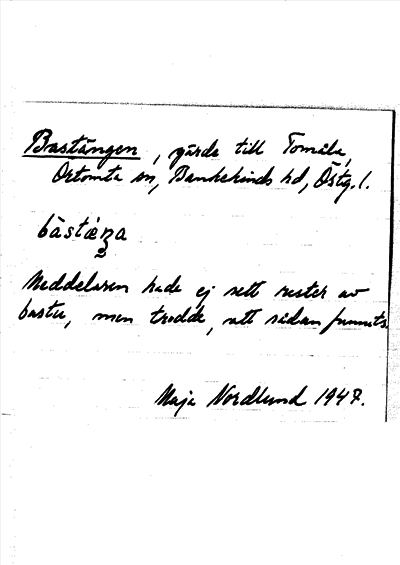 Bastängen, gärde till Tomåla,
Örtomta sn, Bankekinds hd, Östg. l.
bàstæŋa
Meddelaren hade ej sett rester av
bastu, men trodde, att sådan funnits
Maja Nordlund 1947.